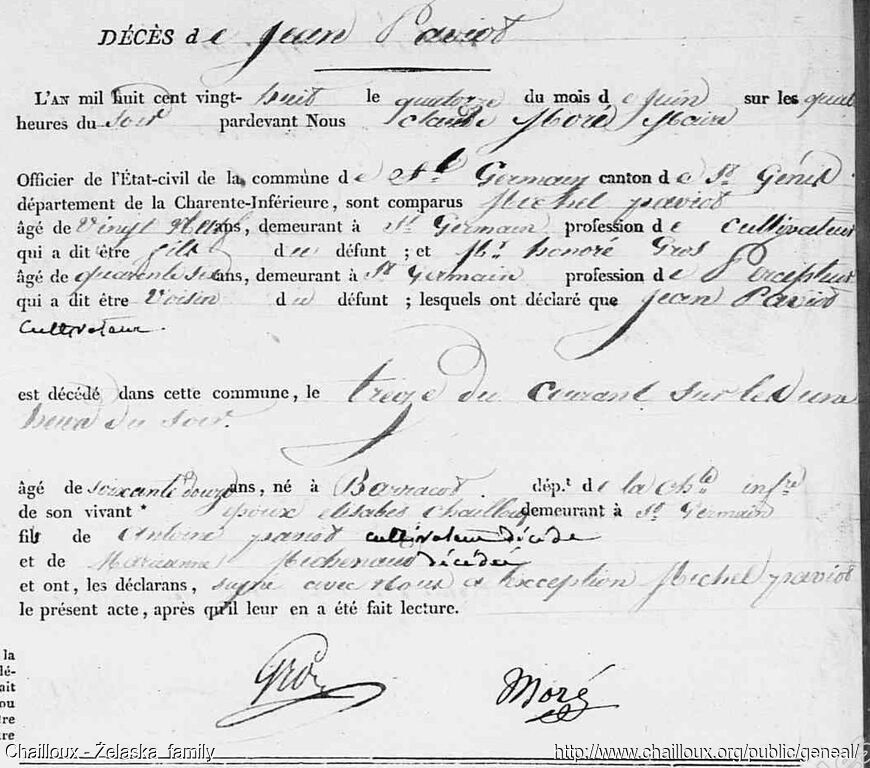 DÉCÈS de Jean Paviot
L'AN mil huit cent vingt-huit le quatorze du mois de Juin sur les quatre
heures du Soir pardevant Nous Claude Moré Maire
Officier de l'État-civil de la commune de St. Germain canton de St. Génis
département de la Charente-Inférieure, sont comparus Michel paviot
âgé de Vingt Neuf ans, demeurant à St Germain profession de Cultivateur
qui a dit être fils du défunt ; et Mr. honoré Gros
âgé de quarente six ans, demeurant à St Germain profession de Percepteur
qui a dit être Voisin du défunt ; lesquels ont déclaré que Jean Paviot
Cultivateur.
est décédé dans cette commune, le treize du Courant sur les une
heure du soir.
âgé de soixante douze ans, né à Barracot. dép.t de la Chte infre
de son vivant * époux elisabet Chailloux demeurant à St Germain
fils de Antoine paviot cultivateur décédé
et de Marianne Michenaud décédée
et ont, les déclarans, signé avec Nous a l'exception Michel paviot
le présent acte, après qu'il leur en a été fait lecture.
Gros
Moré
la
dé-
ait
ou
tre
ure
Chailloux - Żelaska family
http://www.chailloux.org/public/geneal/